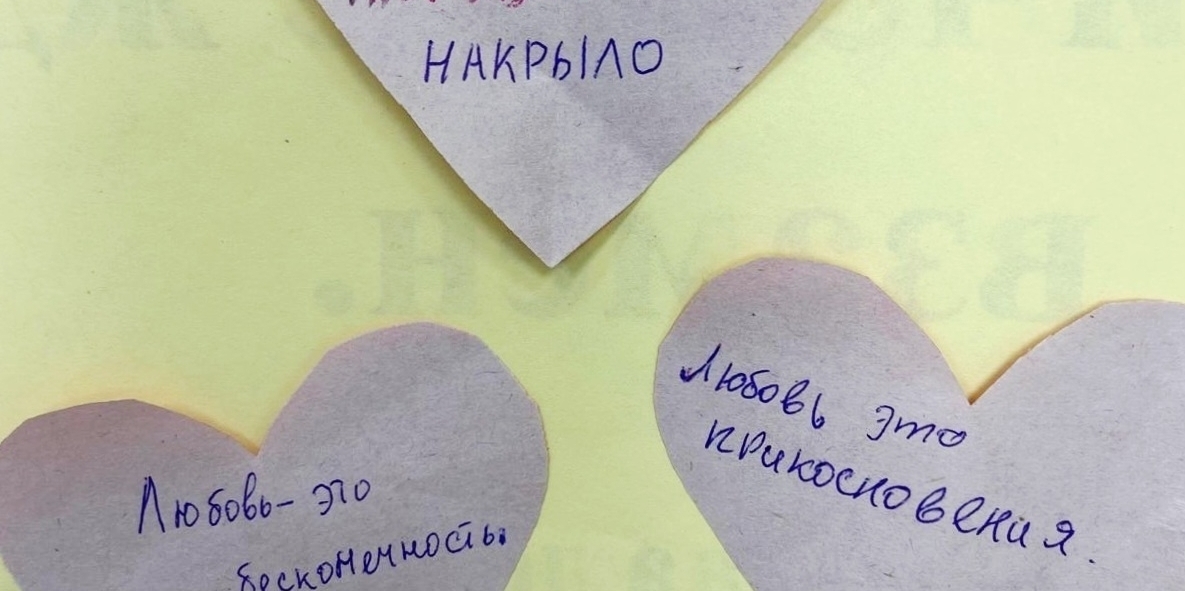 НАКРЫЛО
Любовь это
прикосновения.
Любовь - это
бесконечность.